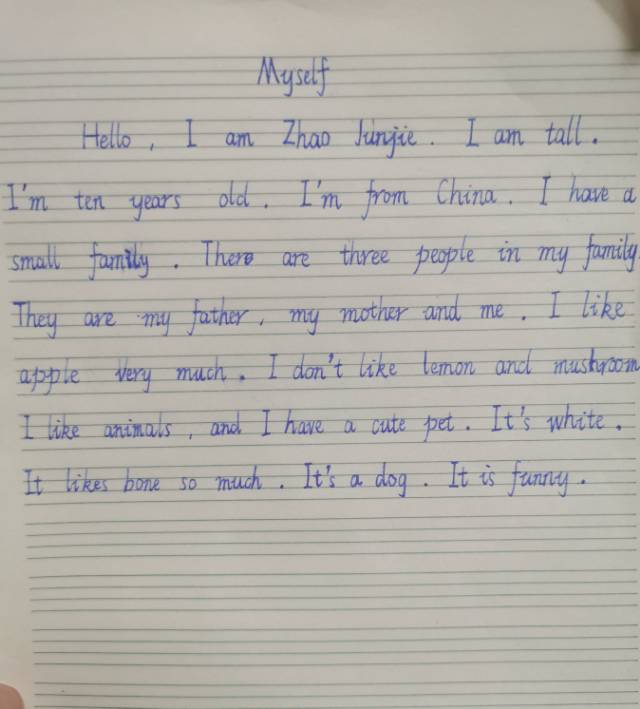 Myself
Hello, I am Zhao Junjie. I am tall.
I'm ten years old. I'm from China. I have a
small family. There are three people in my family.
They are my father, my mother and me. I like
apple very much. I don't like lemon and mushroom
I like animals, and I have a cute pet. It's white.
It likes bone so much. It's a dog. It is funny.